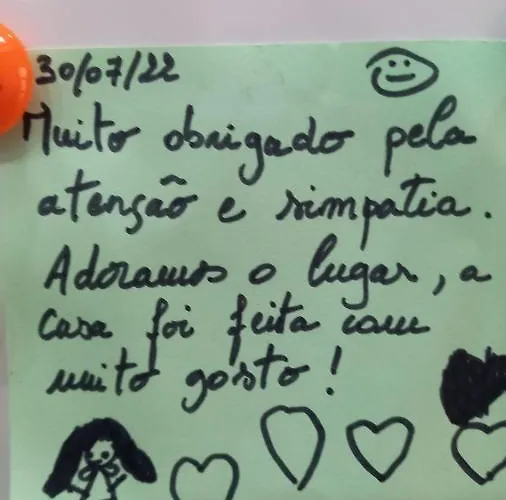 30/07/22
Muito obrigado pela
atenção e simpatia.
Adoramos o lugar, a
casa foi feita com
muito gosto!